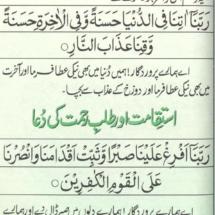 رَبَّنَا اٰتِنَا فِی الدُّنْیَا حَسَنَةً وَّفِی الْاٰخِرَةِ حَسَنَةً
وَّقِنَا عَذَابَ النَّارِ○
اے ہمارے پروردگار! ہمیں دُنیا میں بھی نیکی عطا فرما اور آخرت
میں بھی نیکی عطا فرما اور دوزخ کے عذاب سے بچا۔
استقامت اور طلبِ رحمت کی دُعا
رَبَّنَا اَفْرِغْ عَلَیْنَا صَبْرًا وَّثَبِّتْ اَقْدَامَنَا وَانْصُرْنَا
عَلَی الْقَوْمِ الْکٰفِرِیْنَ○
اے ہمارے پروردگار! ہمارے دلوں میں صبر ڈال دے اور ہمارے